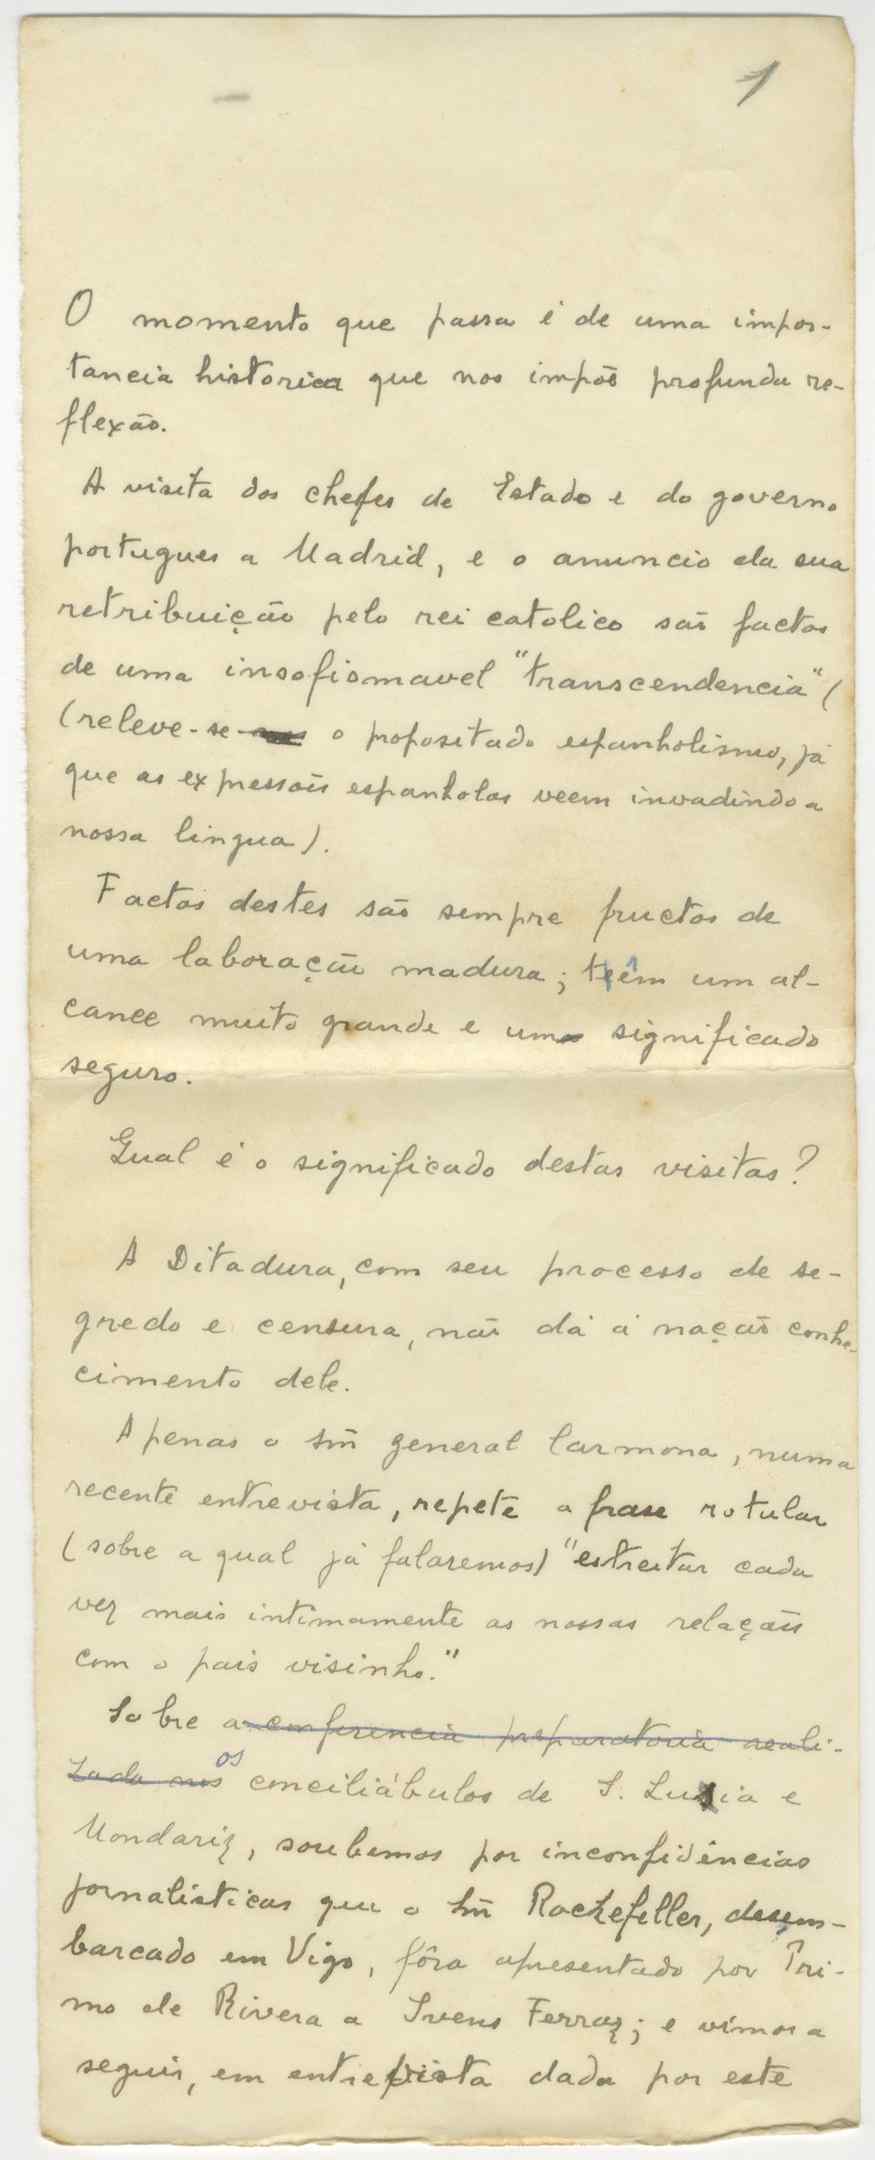 1
O momento que passa é de uma impor-
tancia historica que nos impõe profunda re-
flexão.
A visita dos chefes de Estado e do governo
portugues a Madrid, e o anuncio da sua
retribuição pelo rei catolico são factos
de uma insofismavel "transcendencia" (
(releve-se o propositado espanholismo, já
que as expressões espanholas veem invadindo a
nossa lingua).
Factos destes são sempre fructos de
uma laboração madura; teêm um al-
cance muito grande e um significado
seguro.
Qual é o significado destas visitas?
A Ditadura, com seu processo de se-
gredo e censura, não dá á nação conhe-
cimento dele.
Apenas o Snr general Carmona, numa
recente entrevista, repete a frase rotular
(sobre a qual já falaremos) "estreitar cada
vez mais intimamente as nossas relações
com o pais visinho."
Sobre a conferencia preparatoria reali-
zada nos os conciliábulos de S. Lusia e
Mondariz, soubemos por inconfidências
jornalisticas que o Snr Rockefeller, desem-
barcado em Vigo, fôra apresentado por Pri-
mo de Rivera a Ivens Ferraz; e vimos a
seguir, em entrevista dada por este